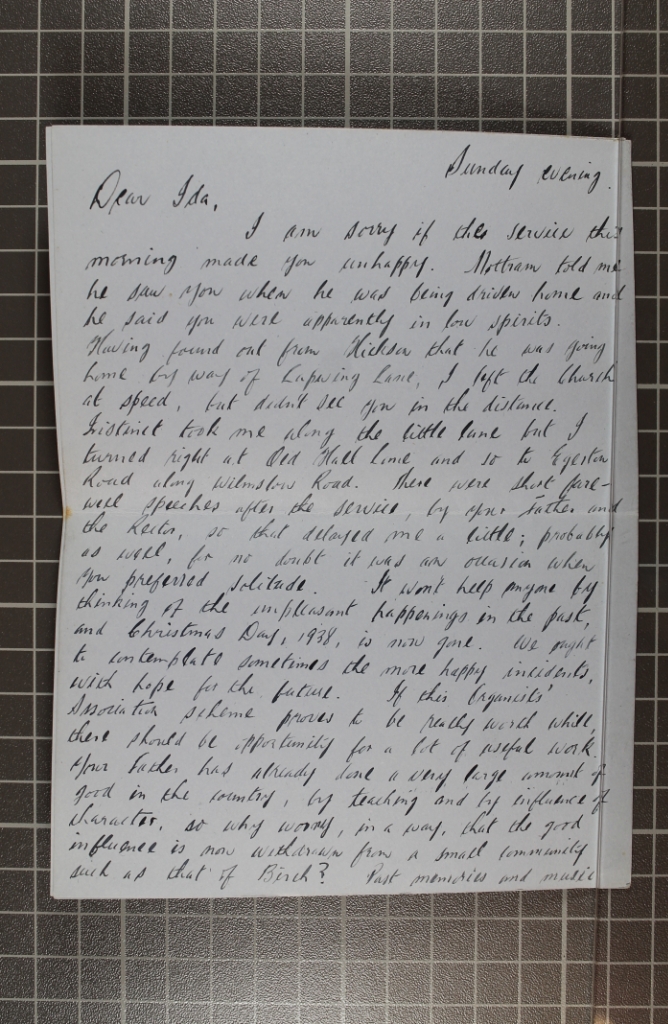 Sunday evening.
Dear Ida,
I am sorry if the service this
morning made you unhappy. Mottram told me
he saw you when he was being driven home and
he said you were apparently in low spirits.
Having found out from Hickson that he was going
home by way of Lapwing Lane, I left the Church
at speed, but didn't see you in the distance.
Instinct took me along the little lane but I
turned right at Old Hall Lane and so to Egerton
Road along Wilmslow Road. There were short fare-
well speeches after the service, by your Father and
the Rector, so that delayed me a little; probably
as well, for no doubt it was an occasion when
you preferred solitude. It won't help anyone by
thinking of the unpleasant happenings in the past,
and Christmas Day, 1938, is now gone. We ought
to contemplate sometimes the more happy incidents,
with hope for the future. If this Organists'
Association scheme proves to be really worth while,
there should be opportunity for a lot of useful work.
Your Father has already done a very large amount of
good in the country, by teaching and by influence of
character, so why worry, in a way, that the good
influence is now withdrawn from a small community
such as that of Birch? Past memories and music